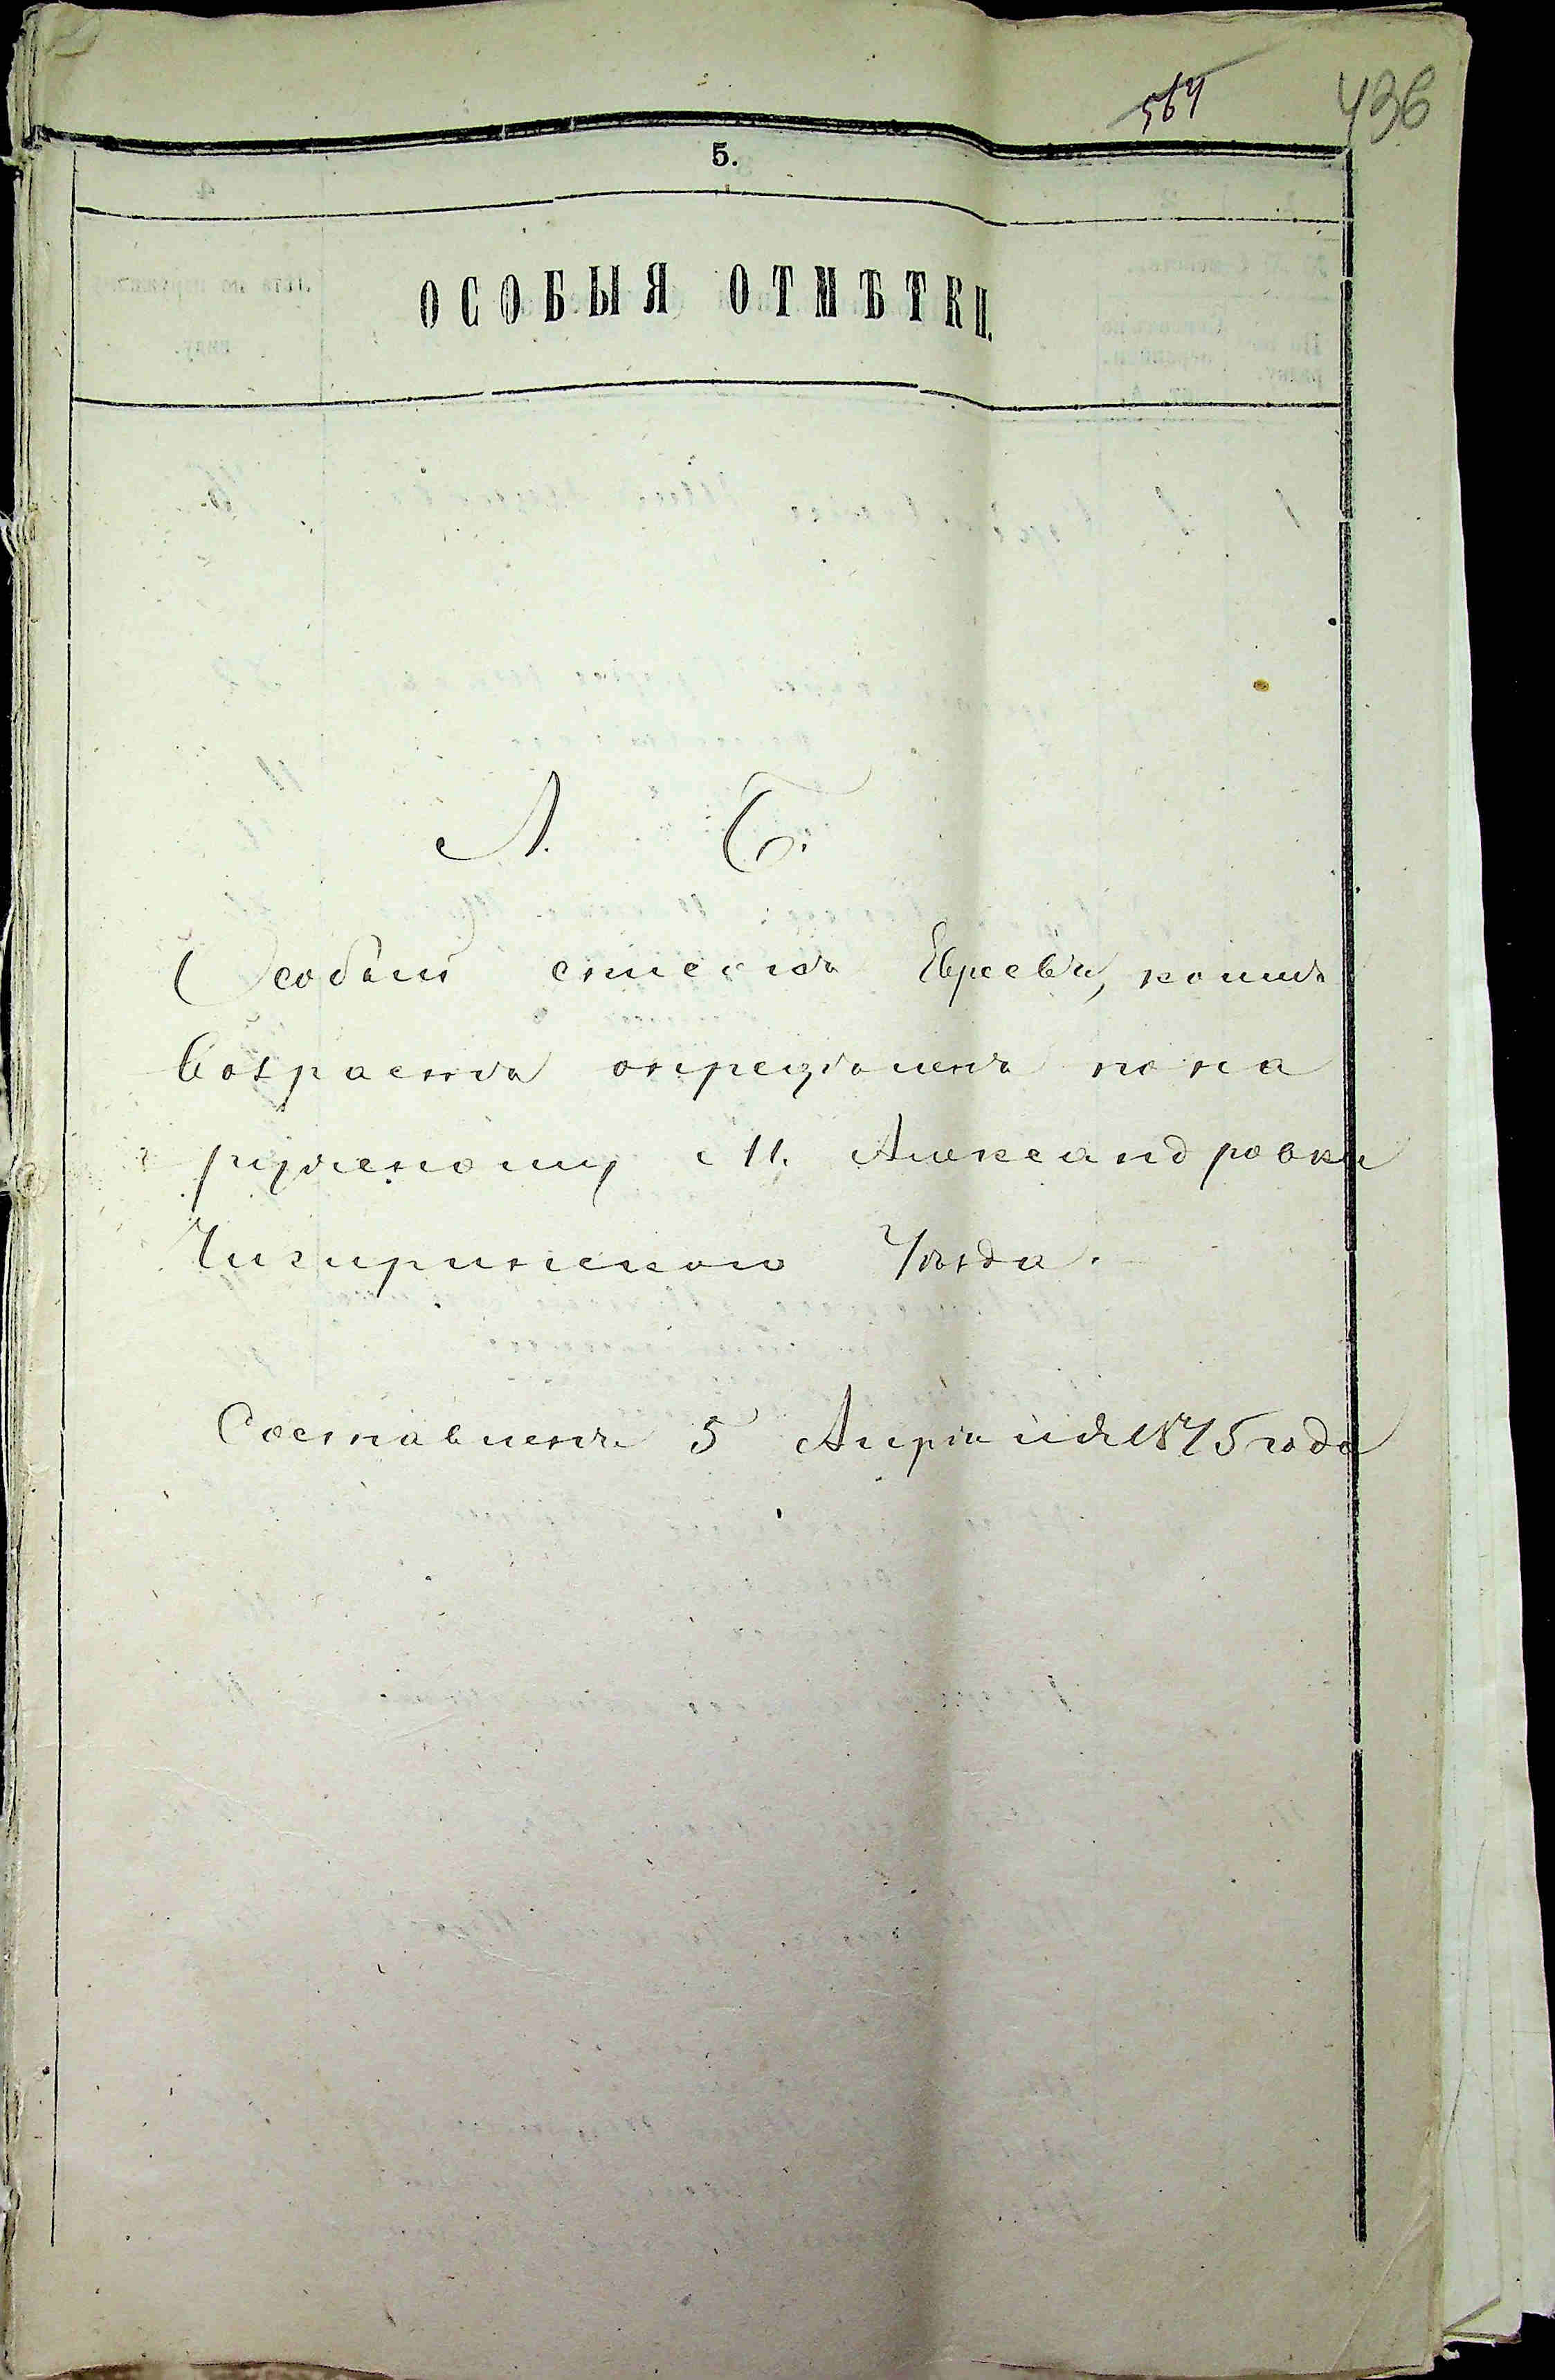 564
436
5.
ОСОБЫЯ ОТМѢТКИ.
Л. Б.
Особый списокъ Евреевъ, коимъ
возрастъ опредѣленъ по на
ружному М. Александровки
Чигиринскаго Уѣзда.
Составленъ 5 Апрѣля 1875 года